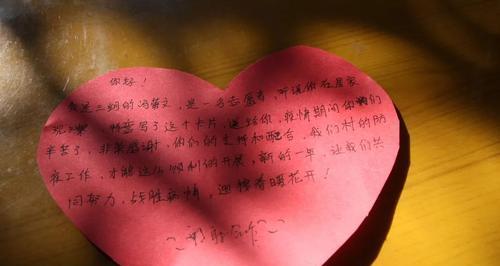 你好！
我是三明的冯  文，是一名志愿者，听说你在居家
观察，特意写了这个卡片，送给你，疫情期间你们
辛苦了，非常感谢，你们的支持和配合，我们村的防
疫工作，才能这么顺利的开展，新的一年，让我们共
同努力，战胜疫情，迎接春暖花开！